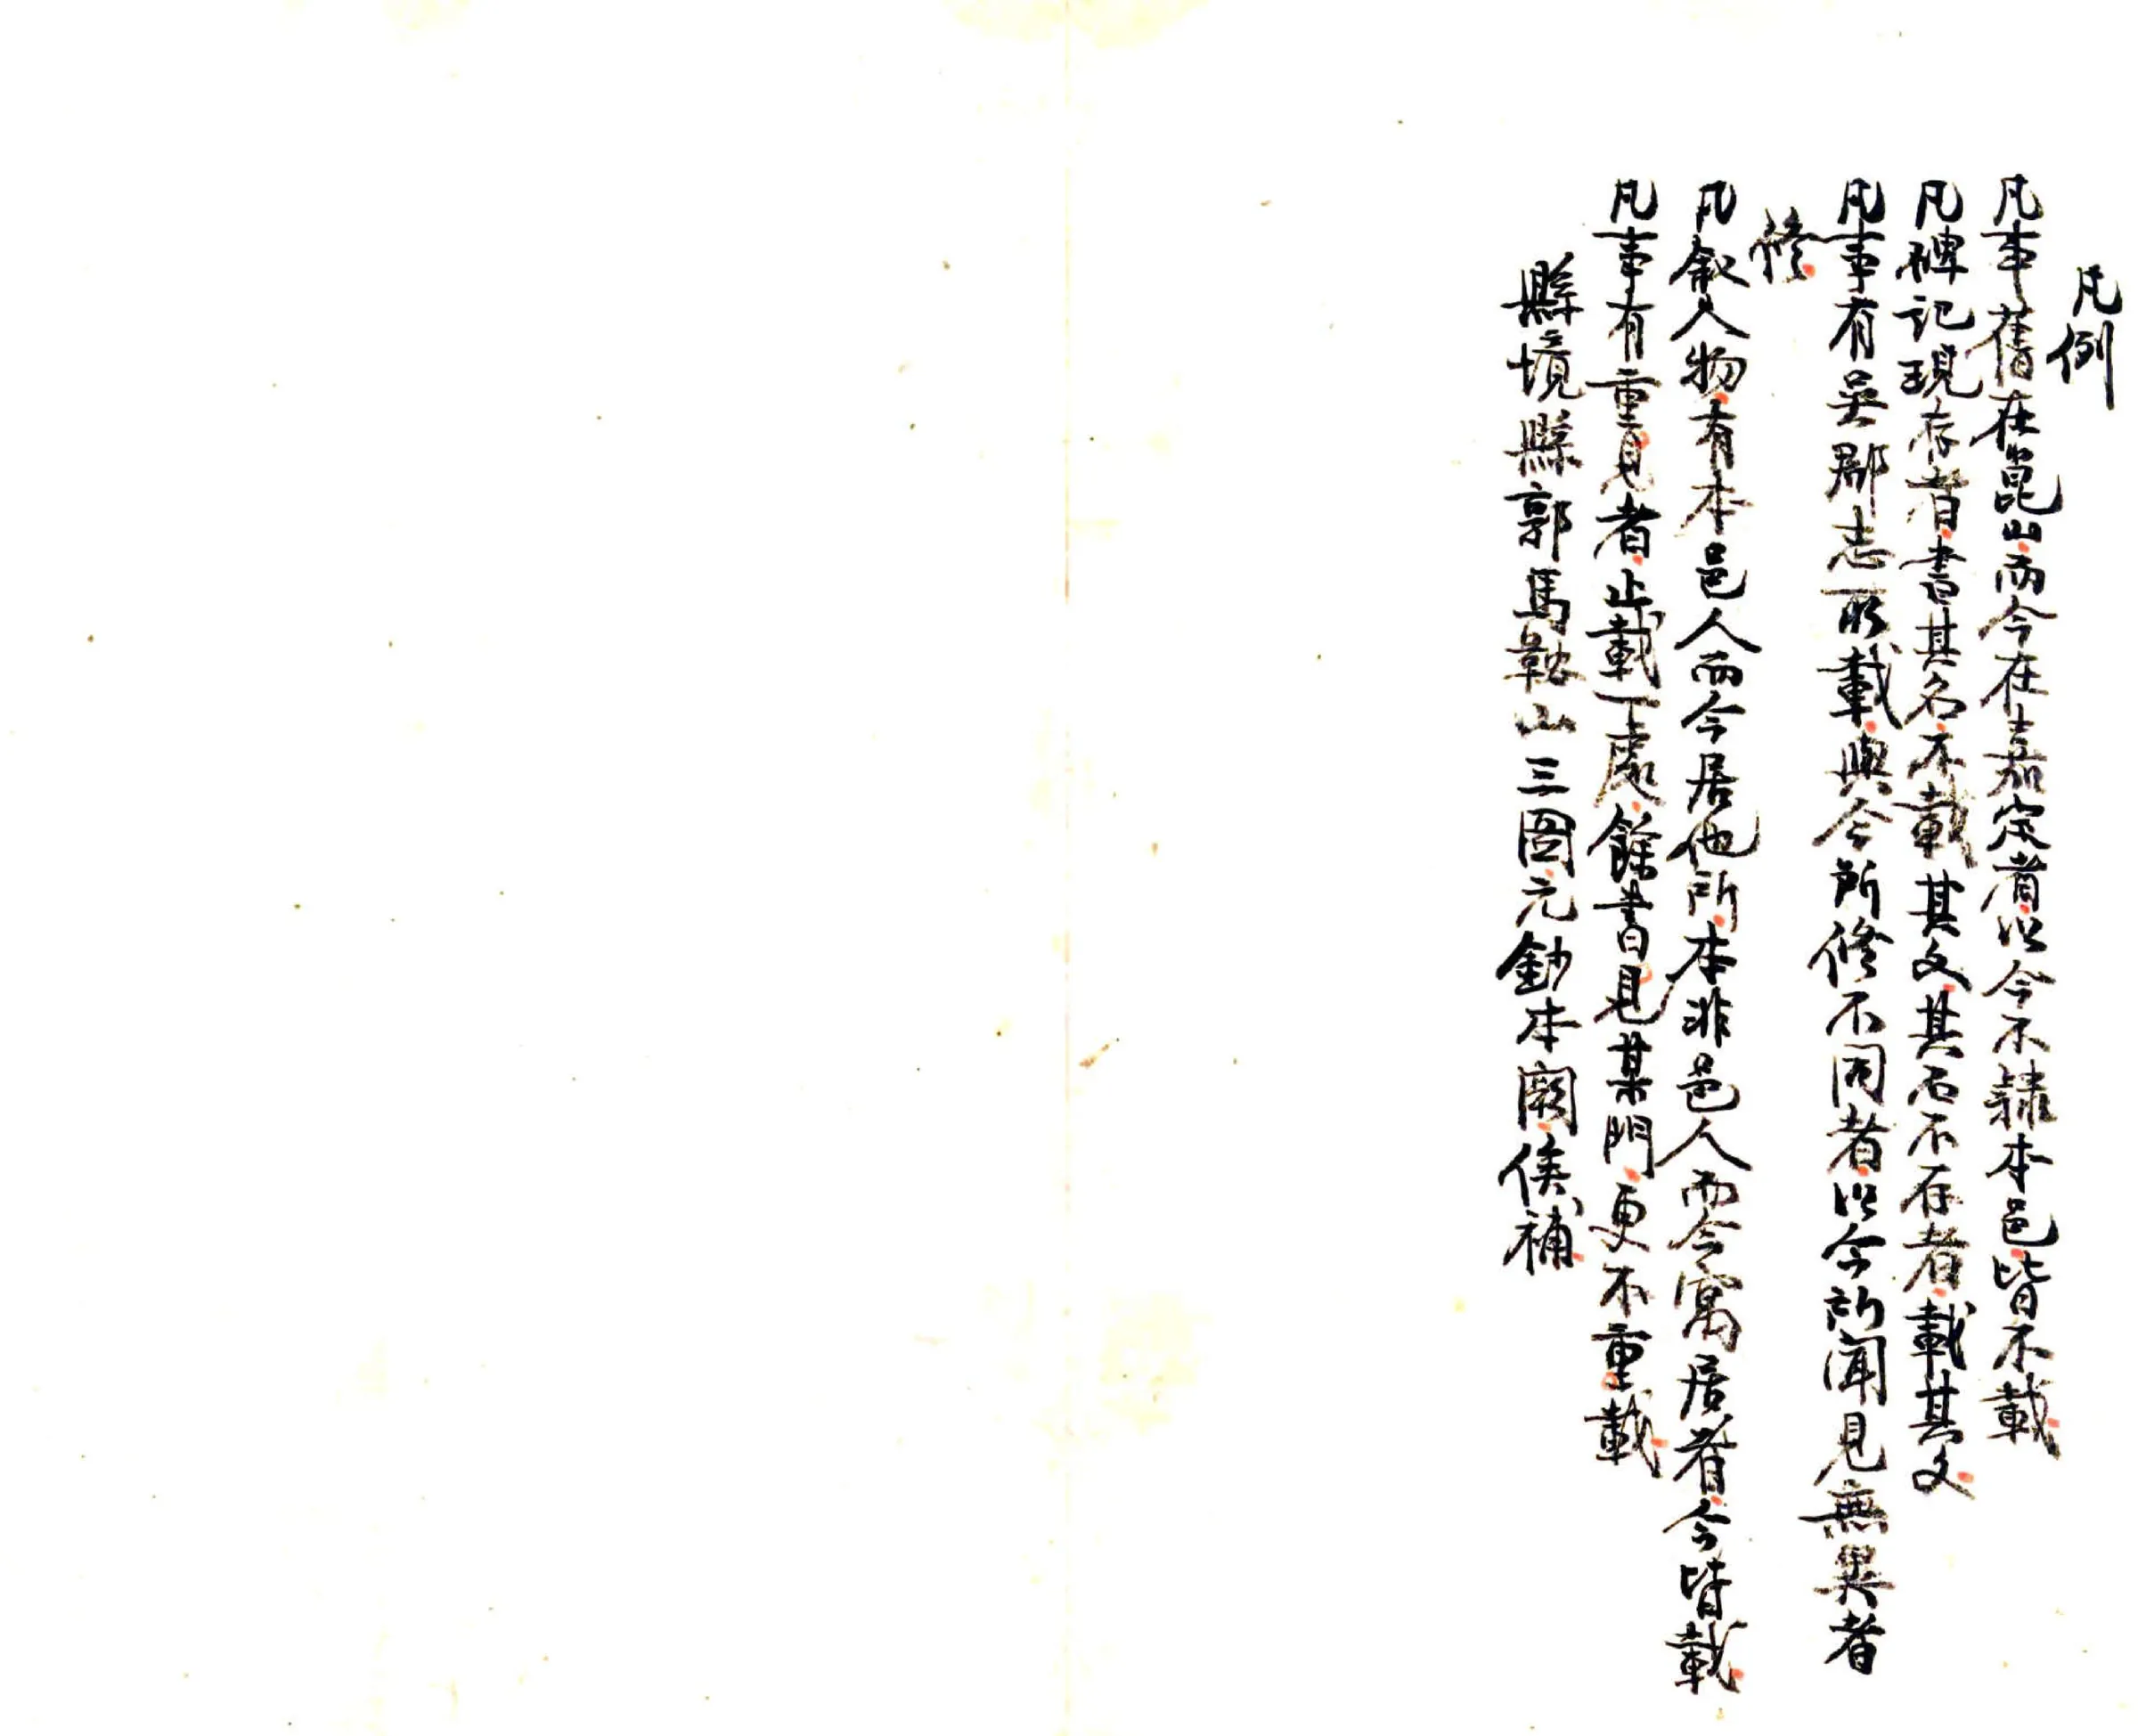 凡例
凡事舊在崑山而今在嘉定者以今不隸本邑皆不載
凡碑記現存者書其名不載其文其石不存者載其文
凡事有吳郡志所載與今所修不同者以今所聞見無異者
修
凡敘人物有本邑人而今居他所本非邑人而今寓居者今皆載
凡事有重見者止載一處餘書見某門更不重載
縣境縣郭馬鞍山三圖元鈔本闕俟補